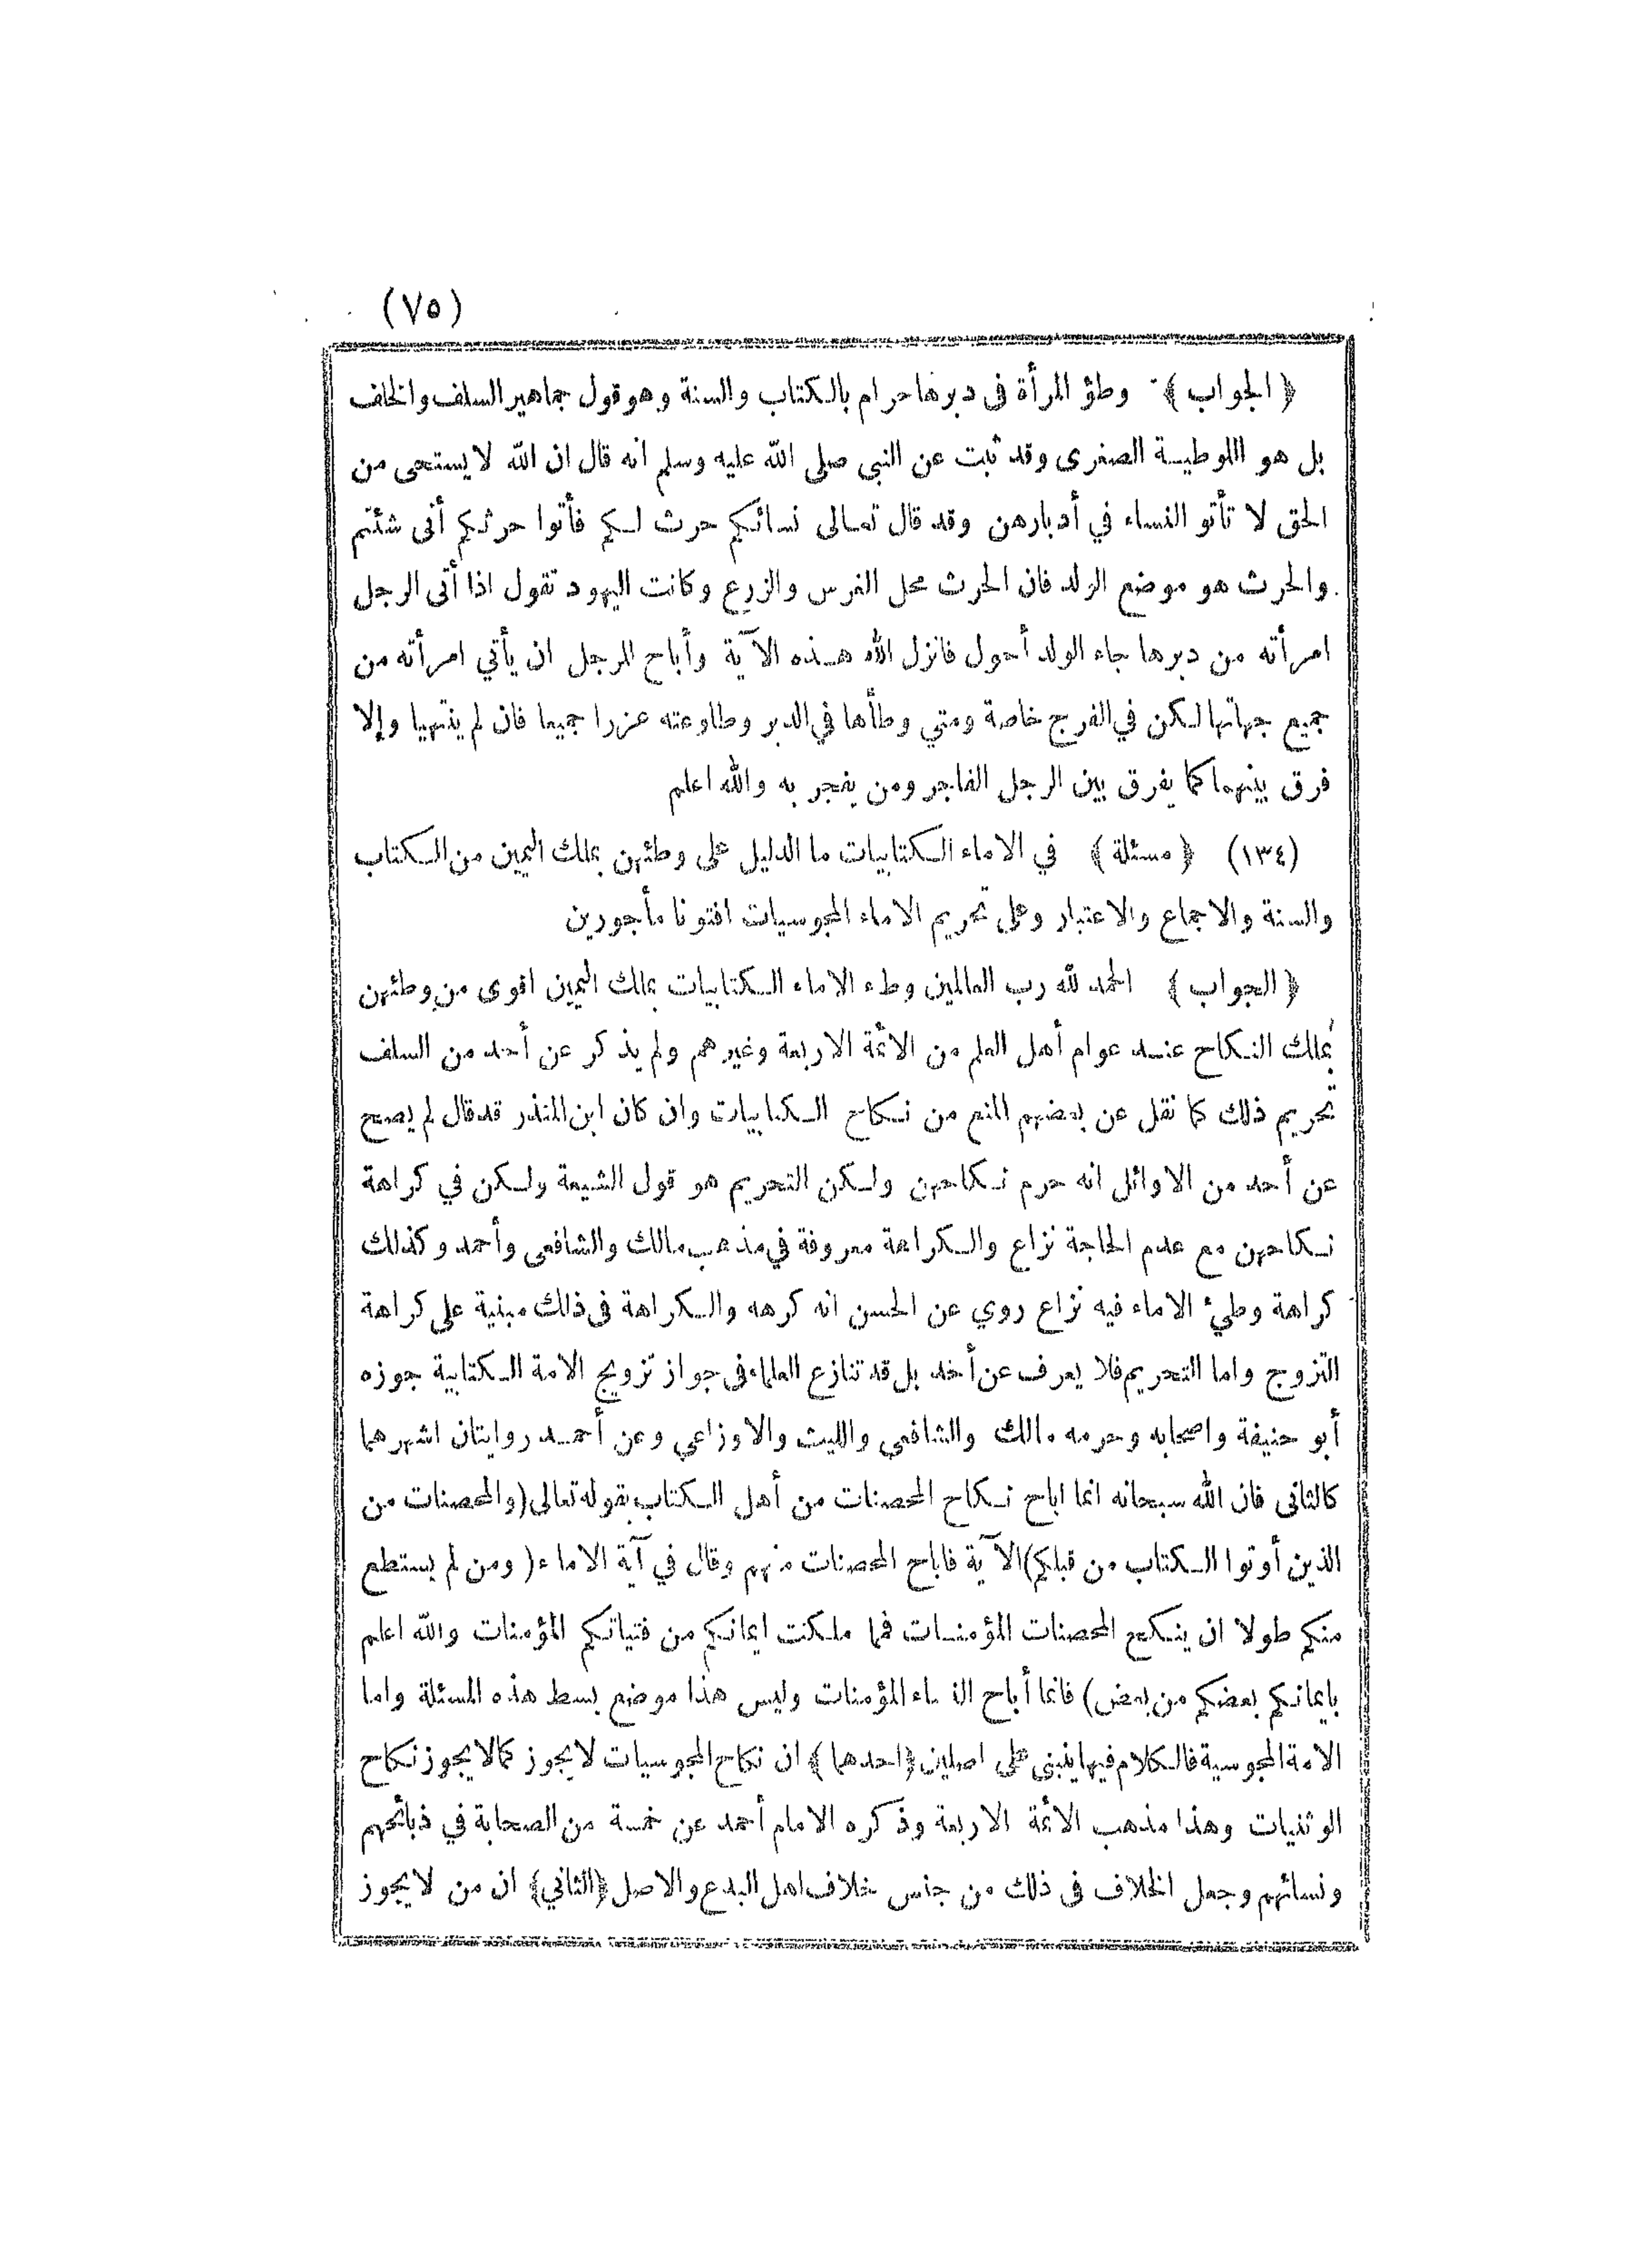 (٧٥)
﴿ الجواب ﴾ وطؤ المرأة فى دبرها حرام بالكتاب والسنة وهو قول جماهير السلف والخلف
بل هو اللوطية الصغرى وقد ثبت عن النبي صلى الله عليه وسلم انه قال ان الله لا يستحى من
الحق لا تأتو النساء في أدبارهن وقد قال تعالى نسائكم حرث لكم فأتوا حرثكم أنى شئتم
والحرث هو موضع الولد فان الحرث محل الغرس والزرع وكانت اليهود تقول اذا أتى الرجل
امرأته من دبرها جاء الولد أحول فانزل الله هذه الآية وأباح للرجل ان يأتي امرأته من
جميع جهاتها لكن في الفرج خاصة ومتي وطأها في الدبر وطاوعته عزرا جميعا فان لم ينتهيا وإلا
فرق بينهما كما يفرق بين الرجل الفاجر ومن يفجر به والله اعلم
(١٣٤) ﴿ مسئلة ﴾ في الاماء الكتابيات ما الدليل على وطئهن بملك اليمين من الكتاب
والسنة والاجماع والاعتبار وعلى تحريم الاماء المجوسيات افتونا مأجورين
﴿ الجواب ﴾ الحمد لله رب العالمين وطء الاماء الكتابيات بملك اليمين اقوى من وطئهن
بملك النكاح عند عوام أهل العلم من الائمة الاربعة وغيرهم ولم يذكر عن أحد من السلف
تحريم ذلك كما نقل عن بعضهم المنع من نكاح الكتابيات وان كان ابن المنذر قد قال لم يصح
عن أحد من الاوائل انه حرم نكاحهن ولكن التحريم هو قول الشيعة ولكن في كراهة
نكاحهن مع عدم الحاجة نزاع والكراهة معروفة في مذهب مالك والشافعى وأحمد وكذلك
كراهة وطىء الاماء فيه نزاع روي عن الحسن انه كرهه والكراهة فى ذلك مبنية على كراهة
التزوج واما التحريم فلا يعرف عن أحد بل قد تنازع العلماء فى جواز تزويج الامة الكتابية جوزه
أبو حنيفة واصحابه وحرمه مالك والشافعي والليث والاوزاعي وعن أحمد روايتان اشهرهما
كالثانى فان الله سبحانه انما اباح نكاح المحصنات من أهل الكتاب بقوله تعالى (والمحصنات من
الذين أوتوا الكتاب من قبلكم) الآية فاباح المحصنات منهم وقال في آية الاماء ( ومن لم يستطع
منكم طولا ان ينكح المحصنات المؤمنات فمما ملكت ايمانكم من فتياتكم المؤمنات والله اعلم
بايمانكم بعضكم من بعض ) فانما أباح النساء المؤمنات وليس هذا موضع بسط هذه المسئلة واما
الامة المجوسية فالكلام فيها ينبنى على اصلين ﴿احدهما﴾ ان نكاح المجوسيات لا يجوز كما لا يجوز نكاح
الوثنيات وهذا مذهب الائمة الاربعة وذكره الامام أحمد عن خمسة من الصحابة في ذبائحهم
ونسائهم وجعل الخلاف فى ذلك من جنس خلاف اهل البدع والاصل ﴿الثاني﴾ ان من لا يجوز